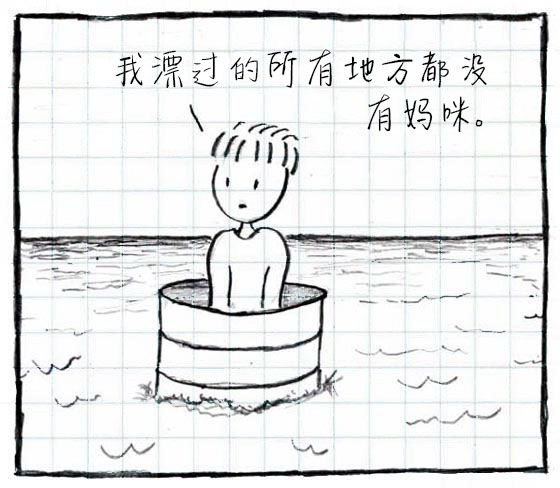 我漂过的所有地方都没
有妈咪。